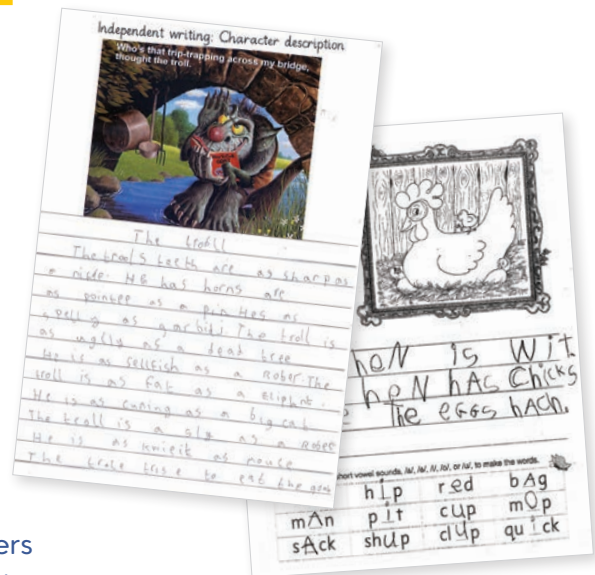 Independent writing: Character description
Who's that trip-trapping across my bridge,
thought the troll.
The troll
The troolS teeth are as sharp as
a nide. HE has horns are
as pointee as a pin Hes as
spelly as garbid. The troll is
as uglly as a dead tree
He is as sellfish as a Rober. The
troll is as fat as a eliphnt.
He is as cuning as a big cat
The troll is a sly as a Rober
He is as knieit as nouse
The trole trise to eat the goat
heN is Wit
heN hAS Chicks
The eGGS hAch.
short vowel sounds, /a/, /e/, /i/, /o/, or /u/, to make the words.
hip red bAg
mAn pit cup mOp
sAck shUp clUp quick
ers